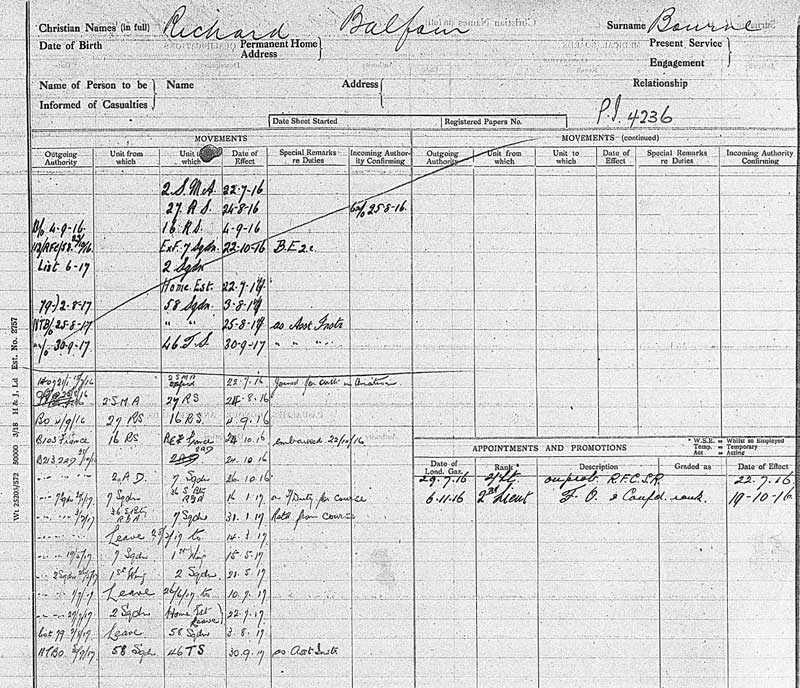 Christian Names (in full) Richard Balfour Surname Bourne
Date of Birth Permanent Home Address Present Service
Engagement
Name of Person to be Informed of Casualties Name Address Relationship
P.I. 4236
Date Sheet Started Registered Papers No.
MOVEMENTS MOVEMENTS (continued)
Outgoing Authority Unit from which Unit to which Date of Effect Special Remarks re Duties Incoming Authority Confirming Outgoing Authority Unit from which Unit to which Date of Effect Special Remarks re Duties Incoming Authority Confirming
2 S.M.A 22-7-16
27 R.S. 24-8-16 25-8-16.
4-9-16. 16 R.S. 4-9-16
Exf. 7 Sqdn. 22-10-16 B.E2c.
List 6-17 2 Sqdn
Home Est. 22-7-17
79-)2-8-17 58 Sqdn. 3-8-17
25-8-17 " " 25-8-17 as Asst Instr
30-9-17 46 T.S 30-9-17 " " "
2 S M A Oxford 22.7.16 Joined for instr in Aviation
2 S.M.A 27 RS 24.8.16
BO 4/9/16 27 RS 16 RS. 4.9.16
France 16 RS France 24.10.16 embarked 22/10/16
B213 2AD 2AD 24.10.16
2 A D. 7 Sqdn 26.10.16
7 Sqdn 16.1.17 on T/Duty for course
7 Sqdn 31.1.17 Retd from course
Leave to 14.3.17
7 Sqdn 1st Wing 15.5.17
2 Sqdn 1st Wing 2 Sqdn 21.5.17
Leave 26/6/17 to 10.7.17
2 Sqdn Home Est Leave 22.7.17
Leave 58 Sqdn 3.8.17
58 Sqdn 46 TS 30.9.17 as Asst Instr
* W.S.E. = Whilst so Employed
Temp. = Temporary
Act = Acting
APPOINTMENTS AND PROMOTIONS
Date of Lond. Gaz. Rank Description Graded as Date of Effect
29.7.16 2/Lt. on prob. R.F.C.S.R. 22.7.16
6.11.16 2nd Lieut F.O. & Confd. rank. 19-10-16
Wt 25203/572 20000 3/18 H & J, Ld Est. No. 2757